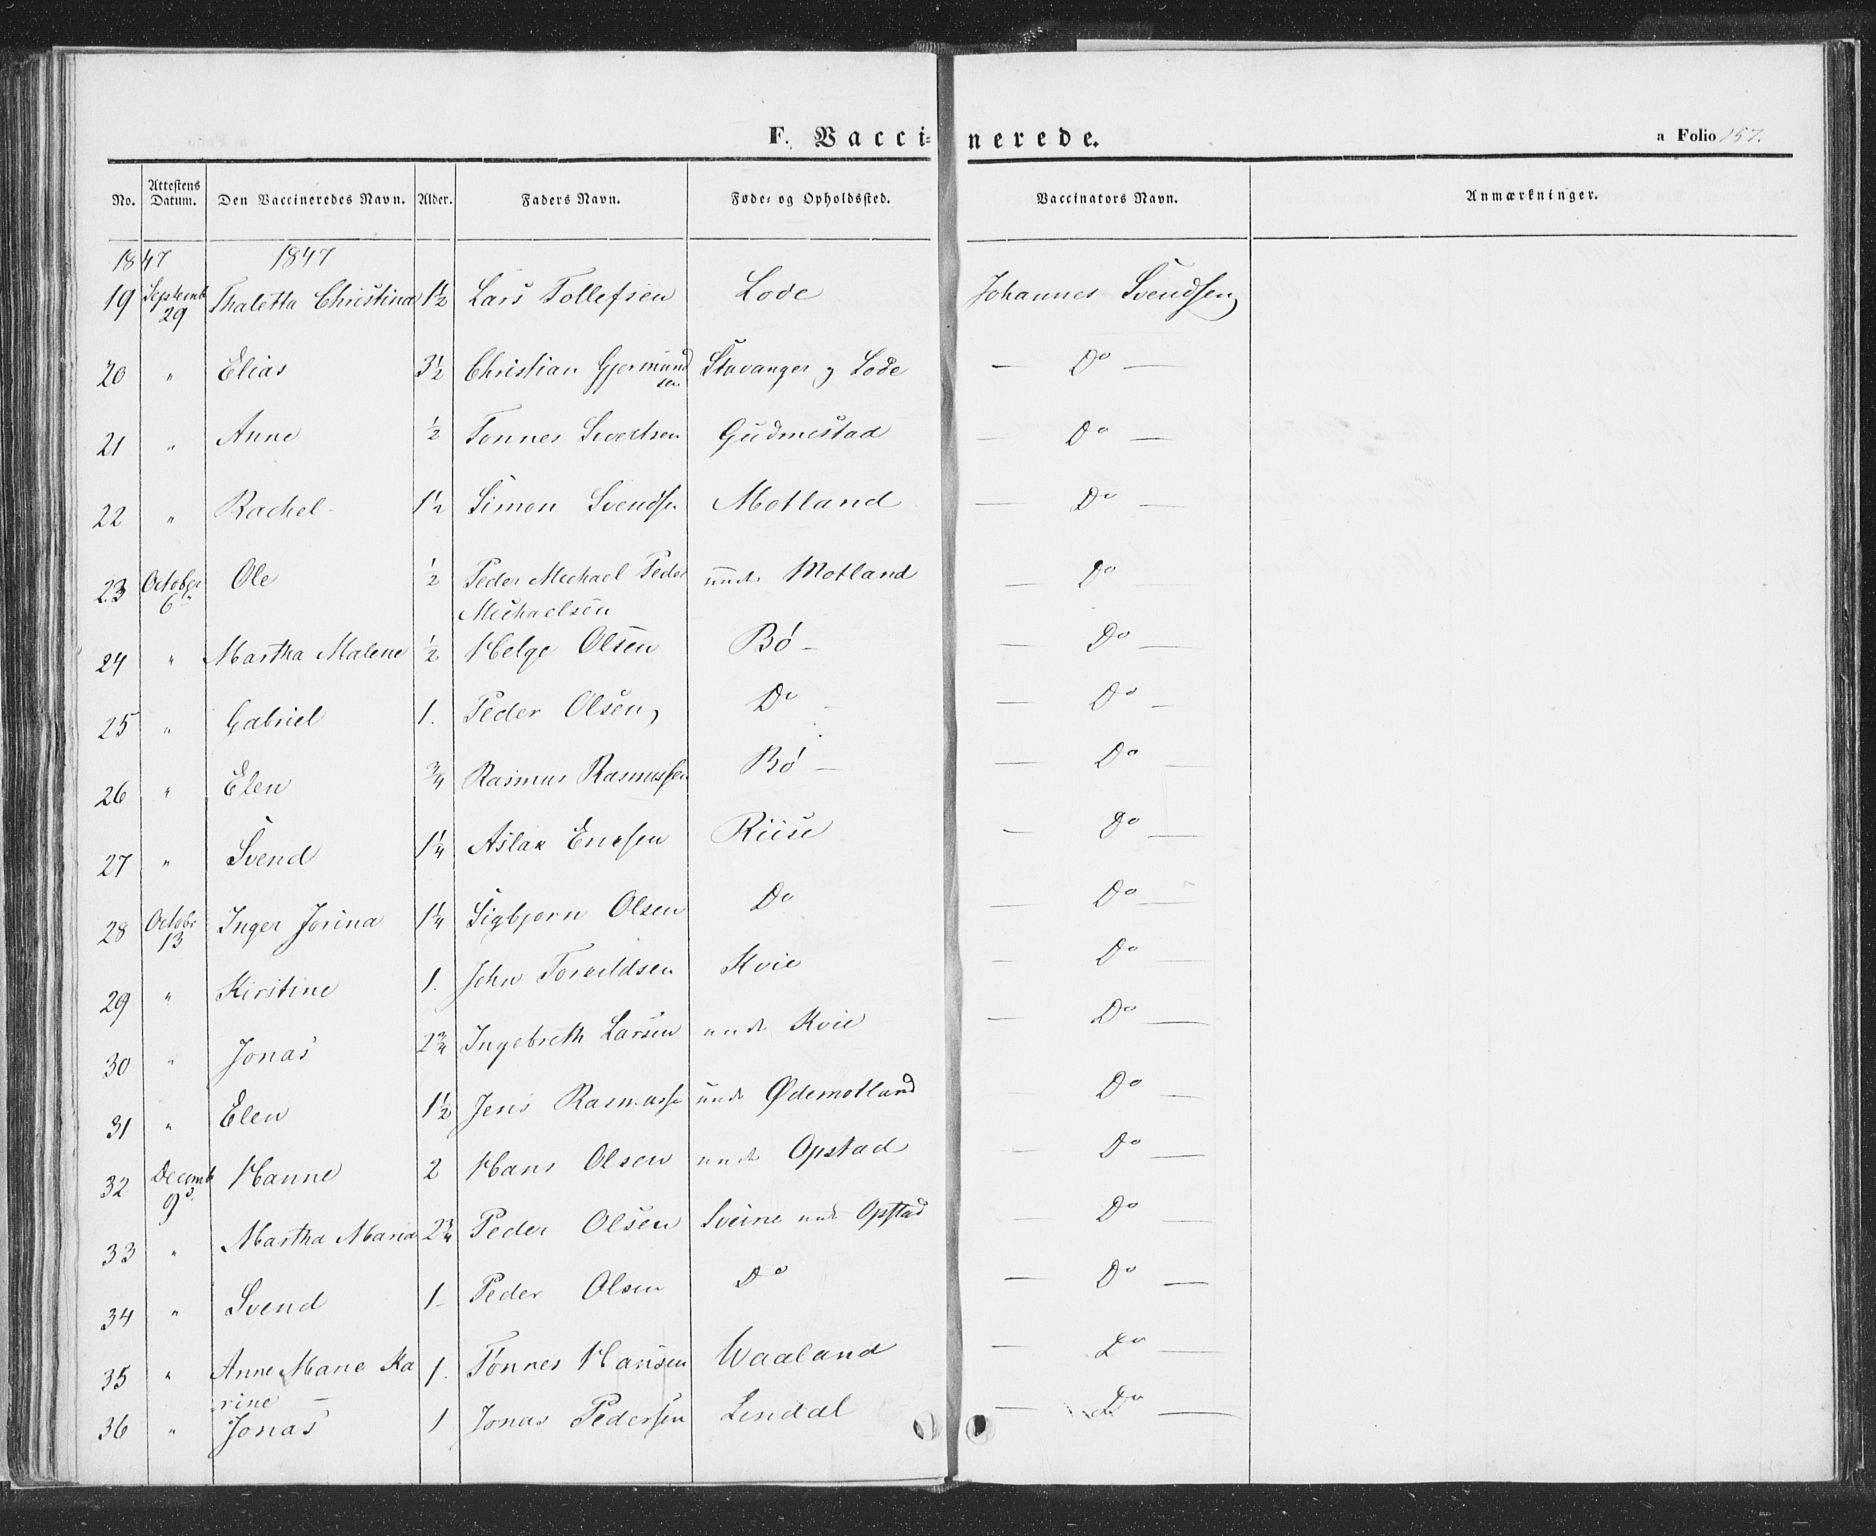 F. Vaccinerede.
a Folio 157.
No. Attestens Datum. Den Vaccineredes Navn. Alder. Faders Navn. Føde- og Opholdssted. Vaccinators Navn. Anmærkninger.
1847 1847
19 Septemb 29 Thaletta Christina 1½ Lars Tollefsen Lode Johannes Svendsen
20 " Elias 3½ Christian Gjermundsen Stavanger og Lode — Do —
21 " Anne ½ Tonnes Sivertsen Gudmestad — Do —
22 " Rachel 1½ Simon Svends Motland — Do —
23 October 6 Ole ½ Peder Michael Peder und Motland — Do
Michaelsen
24 " Martha Malene ½ Helge Olsen Bø — — Do —
25 " Gabriel 1. Peder Olsen Do — — Do —
26 " Elen ¾ Rasmus Rasmussen Bø — — Do —
27 " Svend 1¼ Aslak Ericsen Riise — Do —
28 Octobr 13 Inger Jorina 1¼ Sigbjørn Olsen Do — Do —
29 " Kirstine 1. John Torkildsen Kvie — Do —
30 " Jonas 2¾ Ingebreth Larsen und Kvie — Do —
31 " Elen 1½ Jens Rasmusse und Ødemotland — Do —
32 Decemb 9 Hanne 2 Hans Olsen und Opstad — Do —
33 " Martha Maria 2¾ Peder Olsen und Opstad — Do —
34 " Svend 1 — Peder Olsen Do — Do —
35 " Anne Marie Ka 1. Tønnes Hansen Waaland — Do —
rine —
36 " Jonas 1 Jonas Pedersen Lendal — Do —